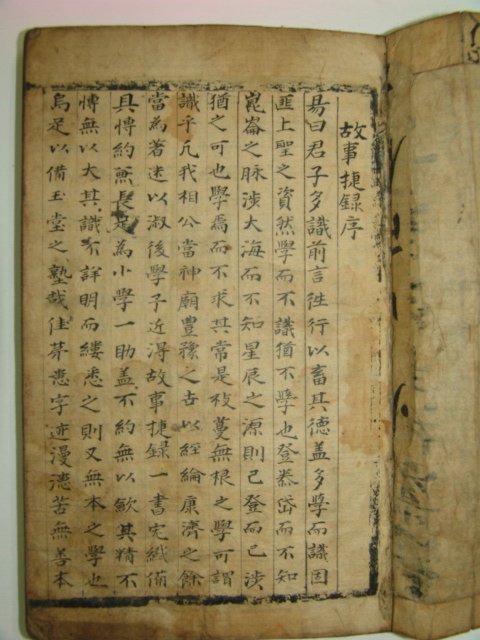 故事捷錄序
易曰君子多識前言徃行以畜其德盖多學而識固
匪上聖之資然學而不識猶不學也登泰岱而不知
崑崙之脉涉大海而不知星辰之源則已登而已涉
猶之可也學焉而不求其常是枝蔓無根之學可謂
識乎凡我相公當神廟豊豫之古以經綸康濟之餘
當為著述以淑後學予近得故事捷錄一書完纎備
具博約無長足為小學一助盖不約無以歛其精不
博無以大其識不詳明而縷悉之則又無本之學也
烏足以備玉堂之塾哉佳茅悫字迹漫漶苦無善本